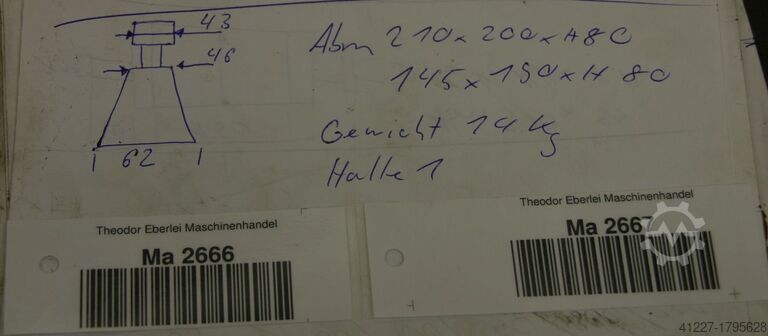 43
46
1 62 1
Abm 210x200xH80
145x190xH80
Gewicht 14 Kg
Halle 1
Theodor Eberlei Maschinenhandel
Ma 2666
Theodor Eberlei Maschinenhandel
Ma 2667
41227-1795628